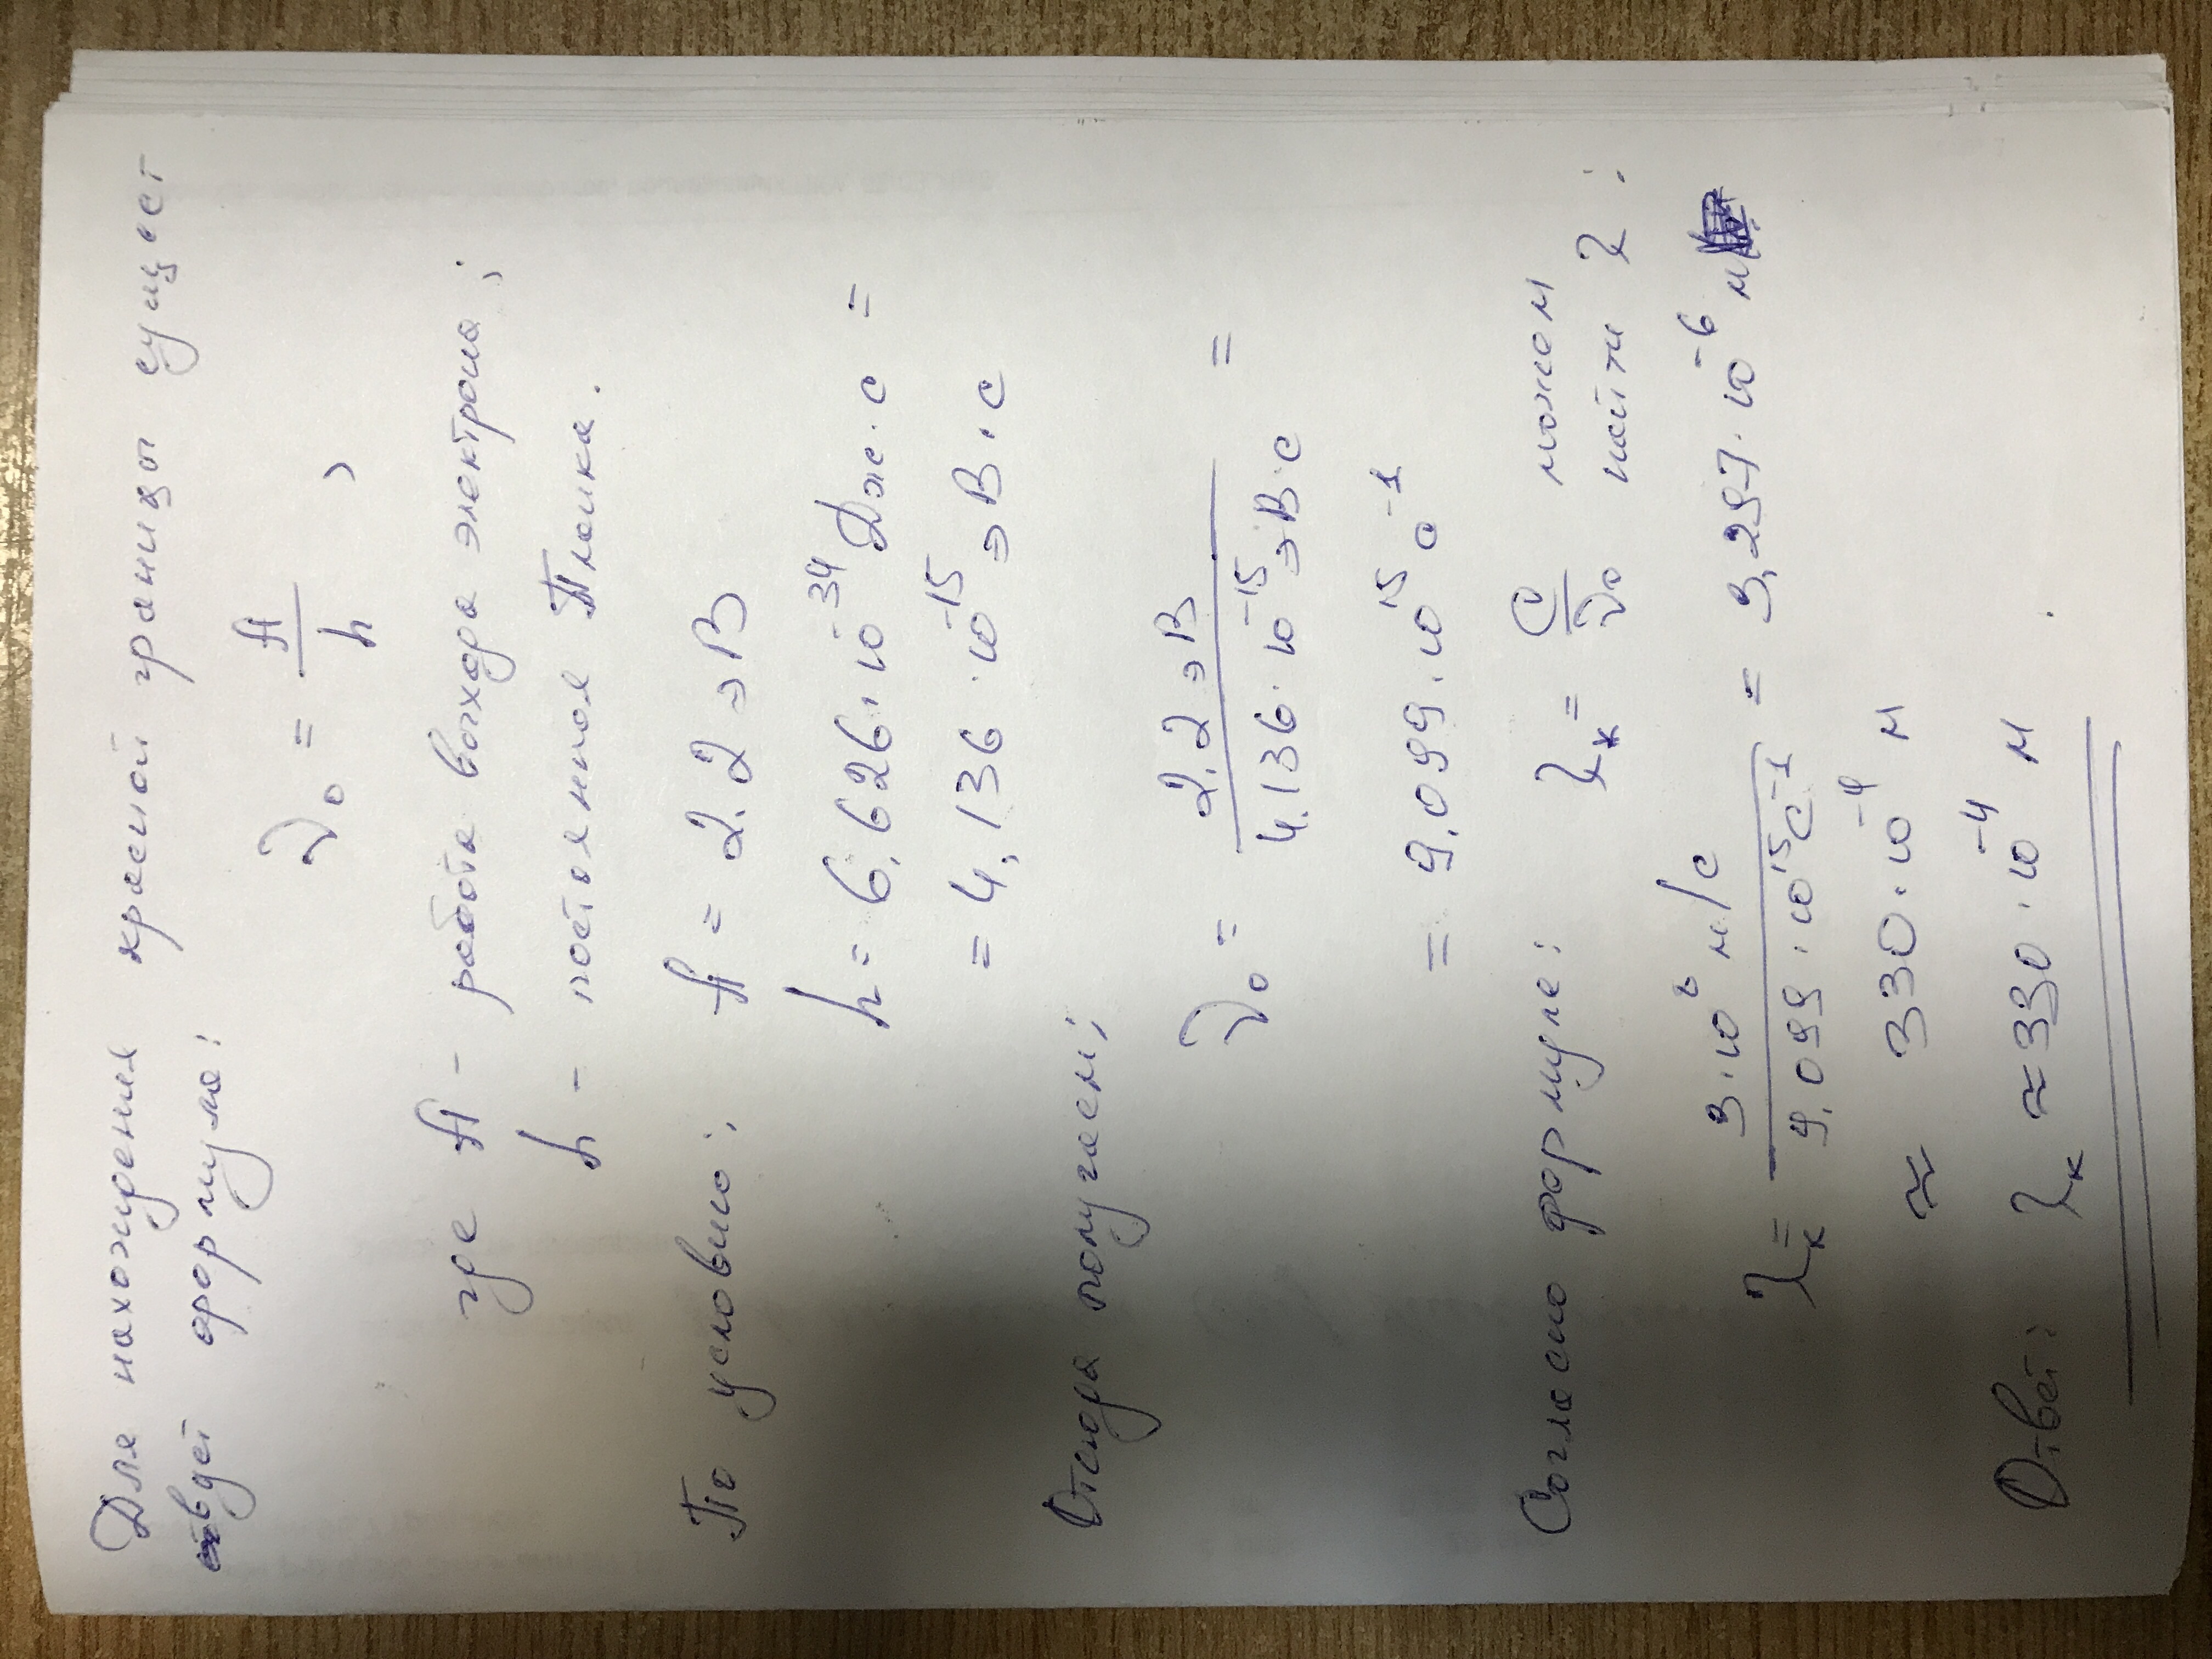 Для нахождения красной границы сущест
вует формула:
ν₀ = A/h ,
где A - работа выхода электрона;
h - постоянная Планка.
По условию: A = 2.2 эВ
h = 6,626·10⁻³⁴ Дж·с =
= 4,136·10⁻¹⁵ эВ·с
Отсюда получаем:
ν₀ = 2.2 эВ / 4,136·10⁻¹⁵ эВ·с =
= 9,099·10¹⁵ с⁻¹
Согласно формуле: λₖ = c/ν₀ можем
найти λ:
λₖ = 3·10⁸ м/с / 9,099·10¹⁵ с⁻¹ = 3,297·10⁻⁶ м
≈ 330·10⁻⁴ м
Ответ: λₖ ≈ 330·10⁻⁴ м.